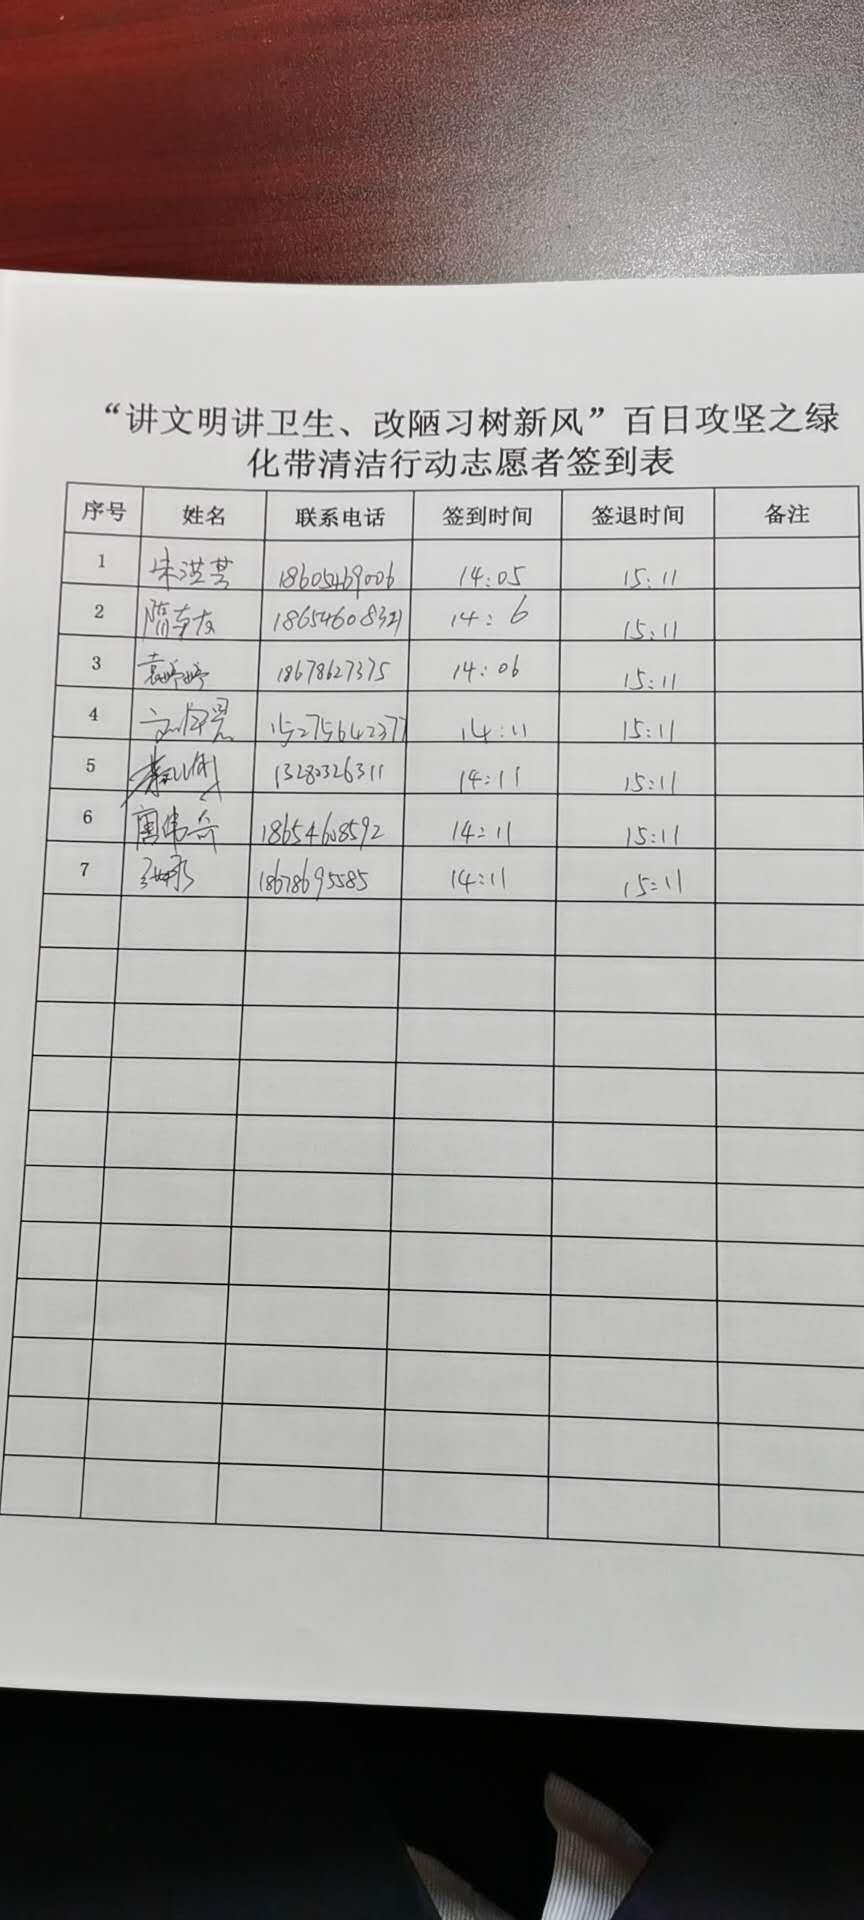 “讲文明讲卫生、改陋习树新风”百日攻坚之绿
化带清洁行动志愿者签到表
序号 姓名 联系电话 签到时间 签退时间 备注
1 朱洪営 18605469006 14:05 15:11
2 隋 友 18654608321 14:6 15:11
3 袁婷婷 18678627375 14:06 15:11
4 15275642377 14:11 15:11
5 13282326311 14:11 15:11
6 唐伟奇 18654608592 14:11 15:11
7 18678695585 14:11 15:11